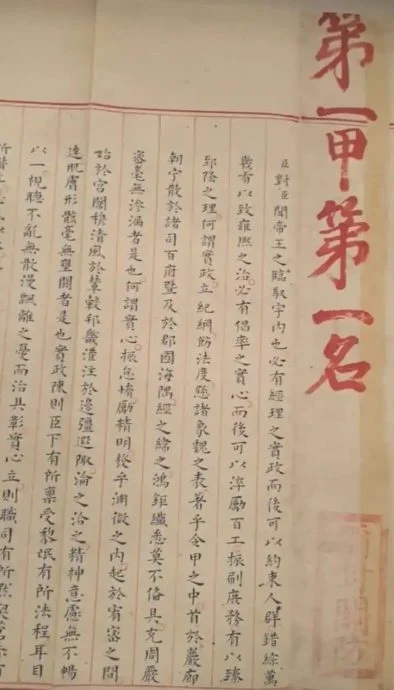 第一甲第一名
臣對臣聞帝王之臨馭宇內也必有經理之實政而後可以約束人群錯綜萬
幾有以致雍熙之治必有倡率之實心而後可以淬勵百工振刷庶務有以臻
郅隆之理何謂實政立紀綱飭法度懸諸象魏之表著乎令甲之中首於巖廊
朝宁散於諸司百府暨及於郡國海隅經之緯之鴻鉅纖悉莫不備具充周嚴
密毫無滲漏者是也何謂實心振怠惰勵精明發乎淵微之內起於宥密之間
始於宮闈穆清風於輦轂邦畿灌注於邊疆遐陬淪之洽之精神意慮無不暢
達肌膚形骸毫無壅閼者是也實政陳則臣下有所稟受黎氓有所法程耳目
以一視聽不亂無散漫飄離之憂而治具彰實心立則職司有所默契